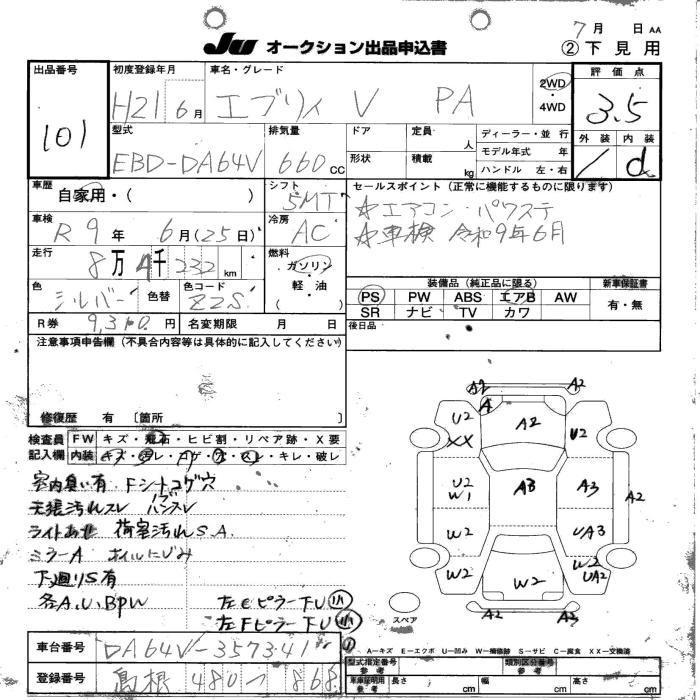 7月 日 AA
JU オークション出品申込書 ②下見用
出品番号 101
初度登録年月 H21 6月
車名・グレード エブリィ V PA
2WD・4WD
評価点 3.5
外装 内装 d
型式 EBD-DA64V
排気量 660cc
ドア 定員 人
形状 積載 kg
ディーラー・並行
モデル年式 年
ハンドル 左・右
車歴 自家用・( )
シフト 5MT
セールスポイント (正常に機能するものに限ります)
☆エアコン・パワステ
☆車検 令和9年6月
車検 R9年 6月(25日)
冷房 AC
走行 8万4千232km
燃料 ガソリン・軽油 ( )
色 シルバー 色替 色コード Z2S
装備品 (純正品に限る) 新車保証書
PS PW ABS エアB AW 有・無
SR ナビ TV カワ
R券 9,310円 名変期限 月 日
後日品
注意事項申告欄 (不具合内容等は具体的に記入してください)
修復歴 有 [箇所 ]
検査員記入欄
FW キズ・飛石・ヒビ割・リペア跡・X要
内装 キズ・汚レ・コゲ・穴・スレ・キレ・破レ
室内臭い有 Fシートコゲ穴
天張汚れスレ ハンスレ
ライトあせ 荷室汚れS.A.
ミラーA ホイルにじみ
下廻りS有
各A.U.BPW 左CピラーFU
左FピラーFU
A2 A2
A A2
U2 XX U2
U2 W1 A3 A3 A2
W2 UA3
W2 W2 W2 UA2
A2 A3
スペア
A-キズ E-エクボ U-凹み W-補修跡 S-サビ C-腐食 XX-交換済
車台番号 DA64V-357341
登録番号 島根 480 868
型式指定番号 参考 類別区分番号 参考
車庫証明用 参考 長さ cm 幅 cm 高さ cm